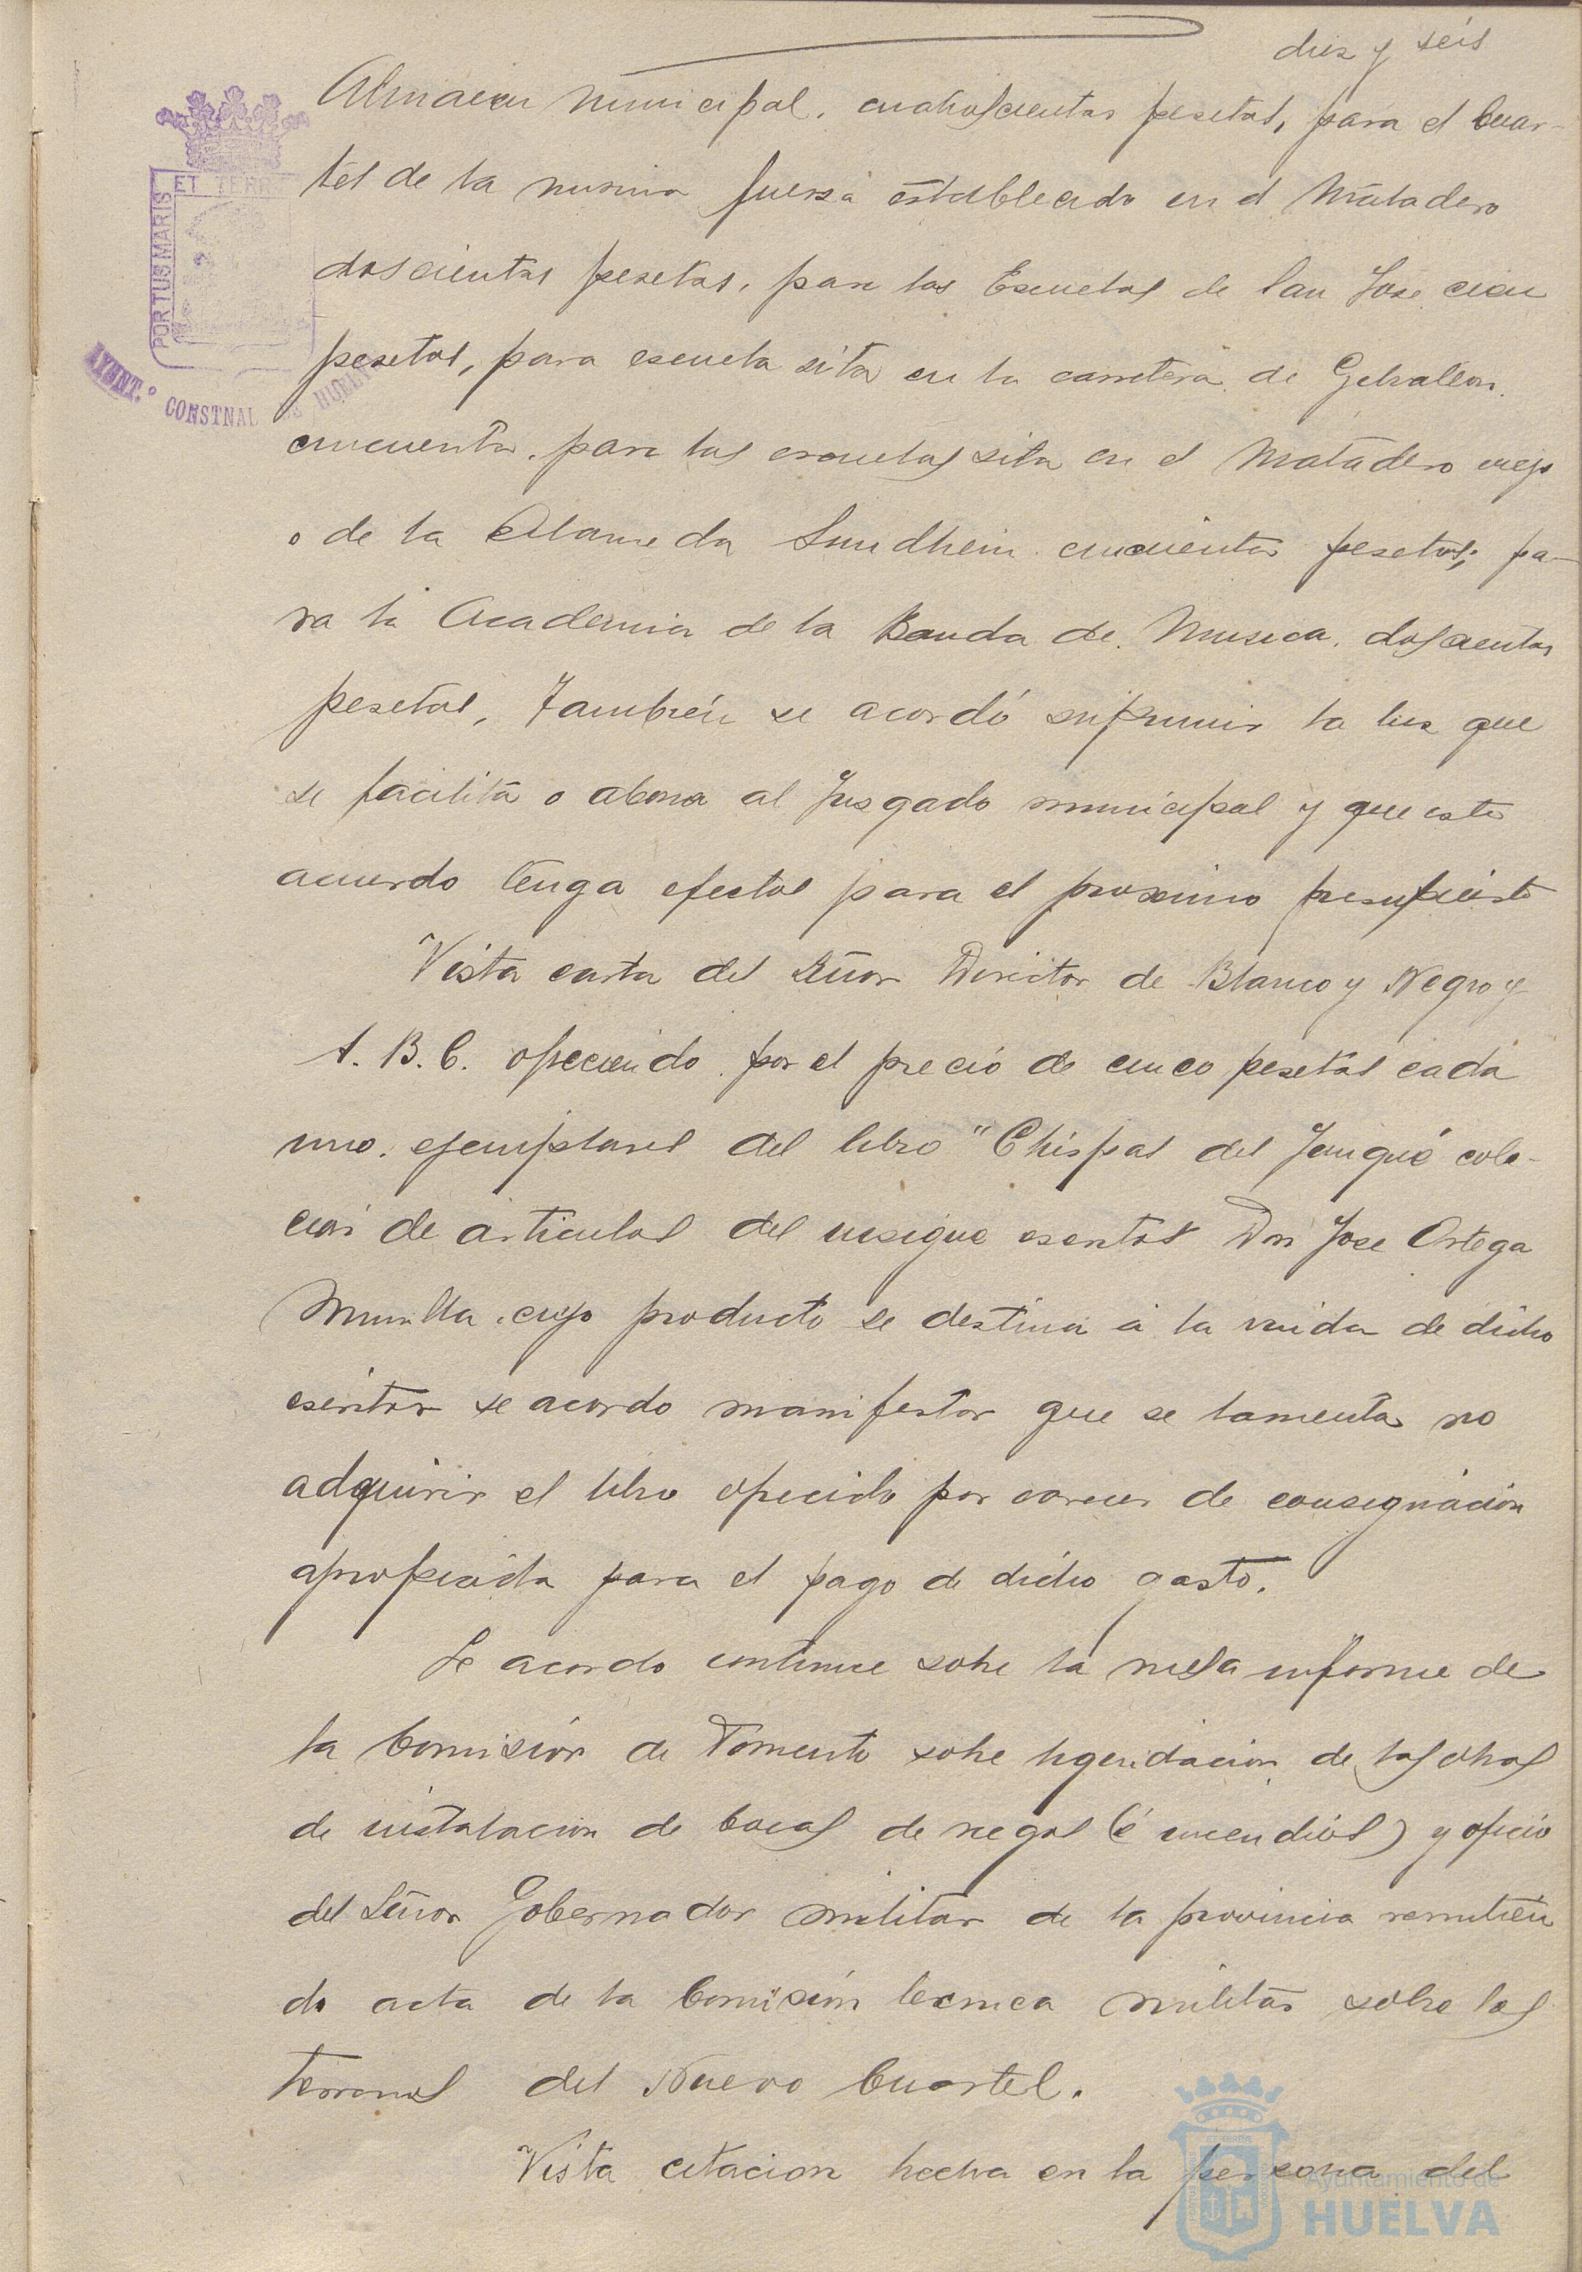 diez y seis
Almacen municipal, cuatrocientas pesetas, para el Cuar-
tel de la misma fuerza establecido en el Matadero
doscientas pesetas, para las Escuelas de San Jose cien
pesetas, para escuela sita en la carretera de Gibraleon
cincuenta, para las escuelas sita en el Matadero viejo
o de la Alameda Sundhein cincuenta pesetas; pa-
ra la Academia de la Banda de Musica, doscientas
pesetas, También se acordó suprimir la luz que
se facilita o abona al Juzgado municipal y que este
acuerdo tenga efectos para el proximo presupuesto
Vista carta del Señor Director de Blanco y Negro y
A. B. C. ofreciendo por el precio de cinco pesetas cada
uno, ejemplares del libro "Chispas del Yunque colec-
cion de articulos del insigne escritor Don Jose Ortega
Munilla, cuyo producto se destina a la viuda de dicho
escritor se acordo manifestar que se lamenta no
adquirir el libro ofrecido por carecer de consignación
apropiada para el pago de dicho gasto.
Se acordo continue sobre la mesa informe de
la Comisión de Fomento sobre liquidacion de las obras
de instalacion de bocas de riegos (é incendios) y oficio
del Señor Gobernador militar de la provincia remitien
do acta de la Comisión tecnica militar sobre los
terrenos del Nuevo Cuartel.
Vista citacion hecha en la persona del
PORTUS MARIS
ET TERR
AYUNT.º CONSTNAL DE HUELVA
Ayuntamiento de
HUELVA